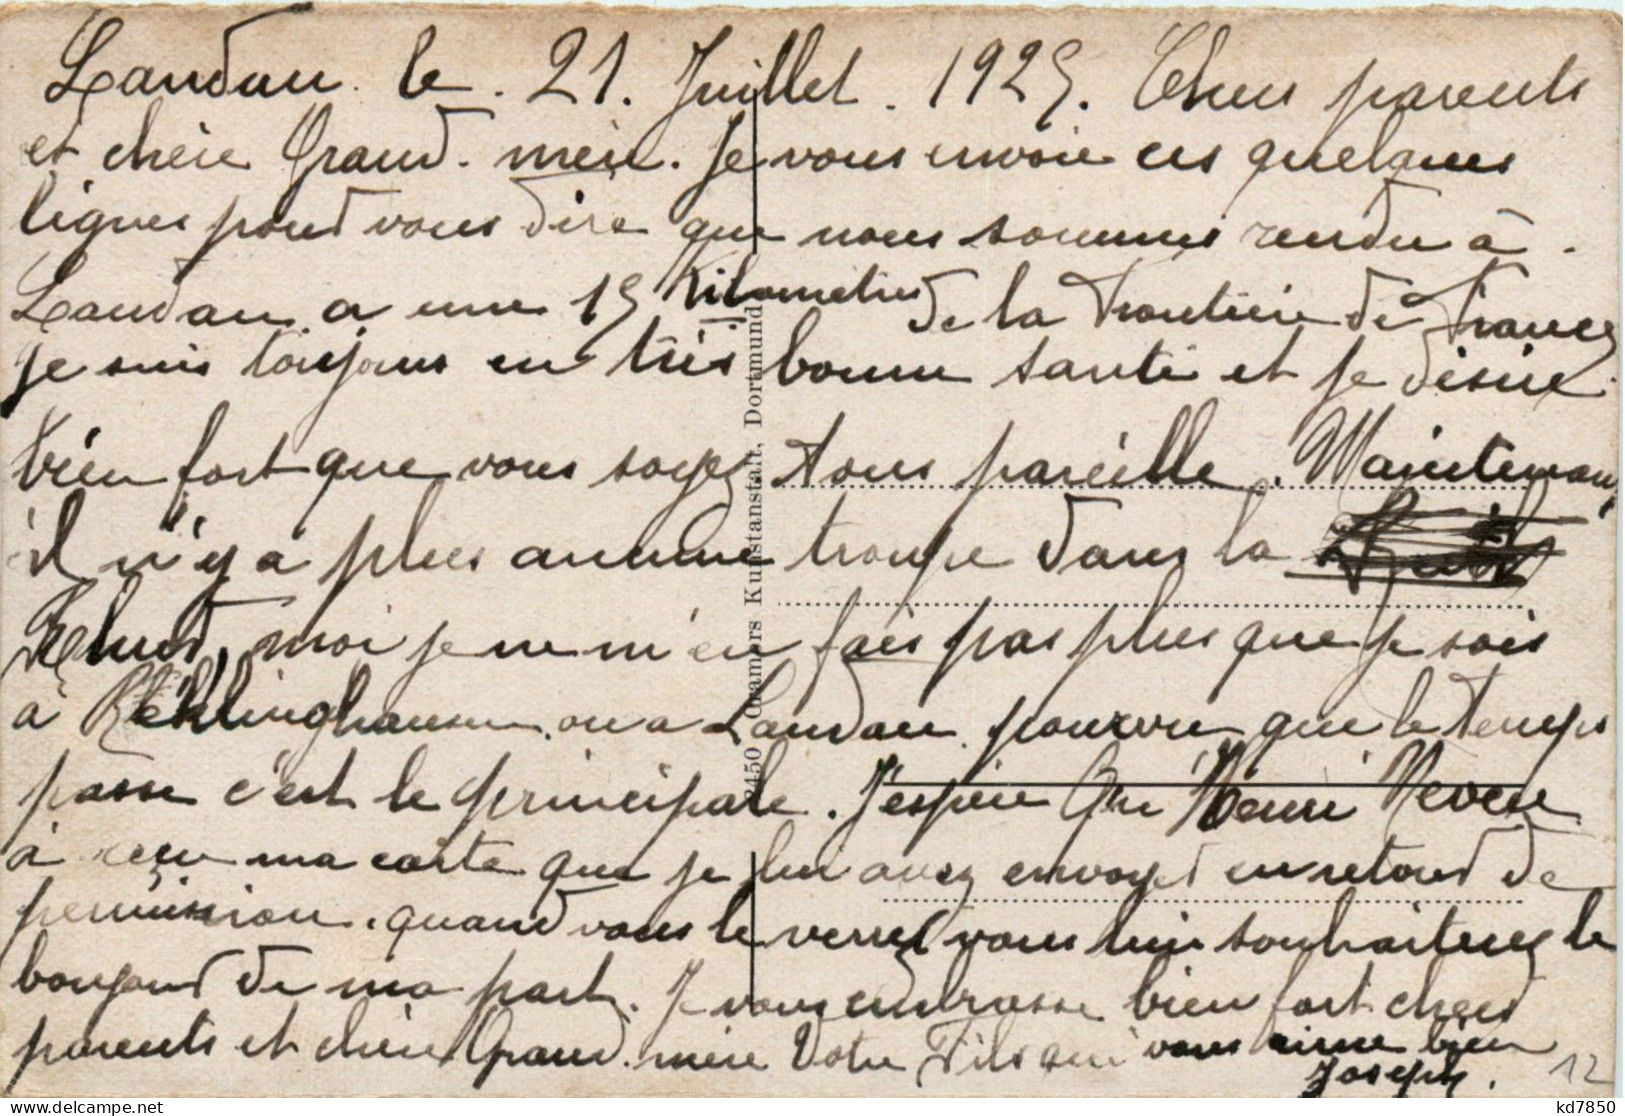 Landau. le. 21. Juillet. 1925. Chers parents
et chère Grand. mère. Je vous envoie ces quelques
lignes pourd vous dire que nous sommes rendu à.
Landau. a une 15 Kilomètres de la Frontière de France
je suis toujours en très bonne santé et je désire.
bien fort que vous soyez tous pareille. Maintenant
il n'y a plus aucune troupe dans la
moi je ne m'en fais pas plus que je sois
à Réklinghausen. ou a Landau. pourvu que le temps
passe c'est le principale. J'espère Que Henri Neveu
à reçu ma carte que je lui avez envoyer en retourd de
permission. quand vous le verrez vous lui souhaiterez le
bonjourd de ma part. Je vous embrasse bien fort chers
parents et chère Grand. mère Votre Fils qui vous aime bien
Joseph.
12
2450 Cramers Kunstanstalt, Dortmund
kd7850